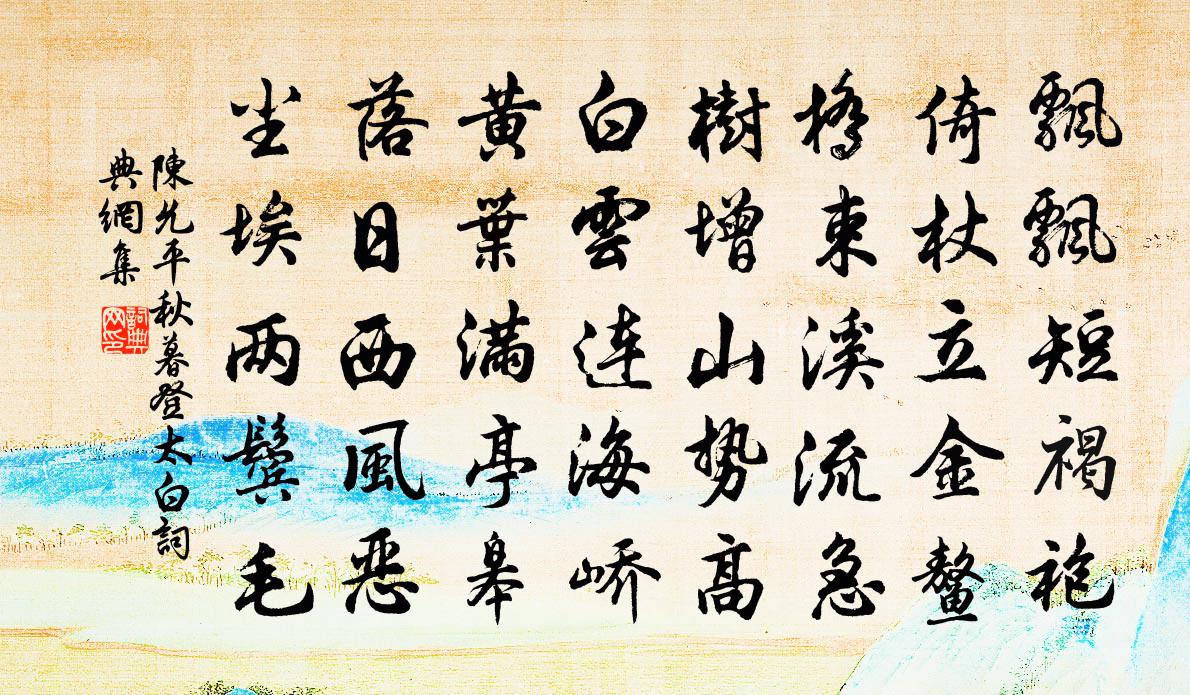 飄飄短褐袍
倚杖立金鰲
橋束溪流急
樹增山势高
白雲连海峤
黃葉滿亭皋
落日西風恶
尘埃两鬢毛
陳允平秋暮登太白詞
典網集
詞典
网印